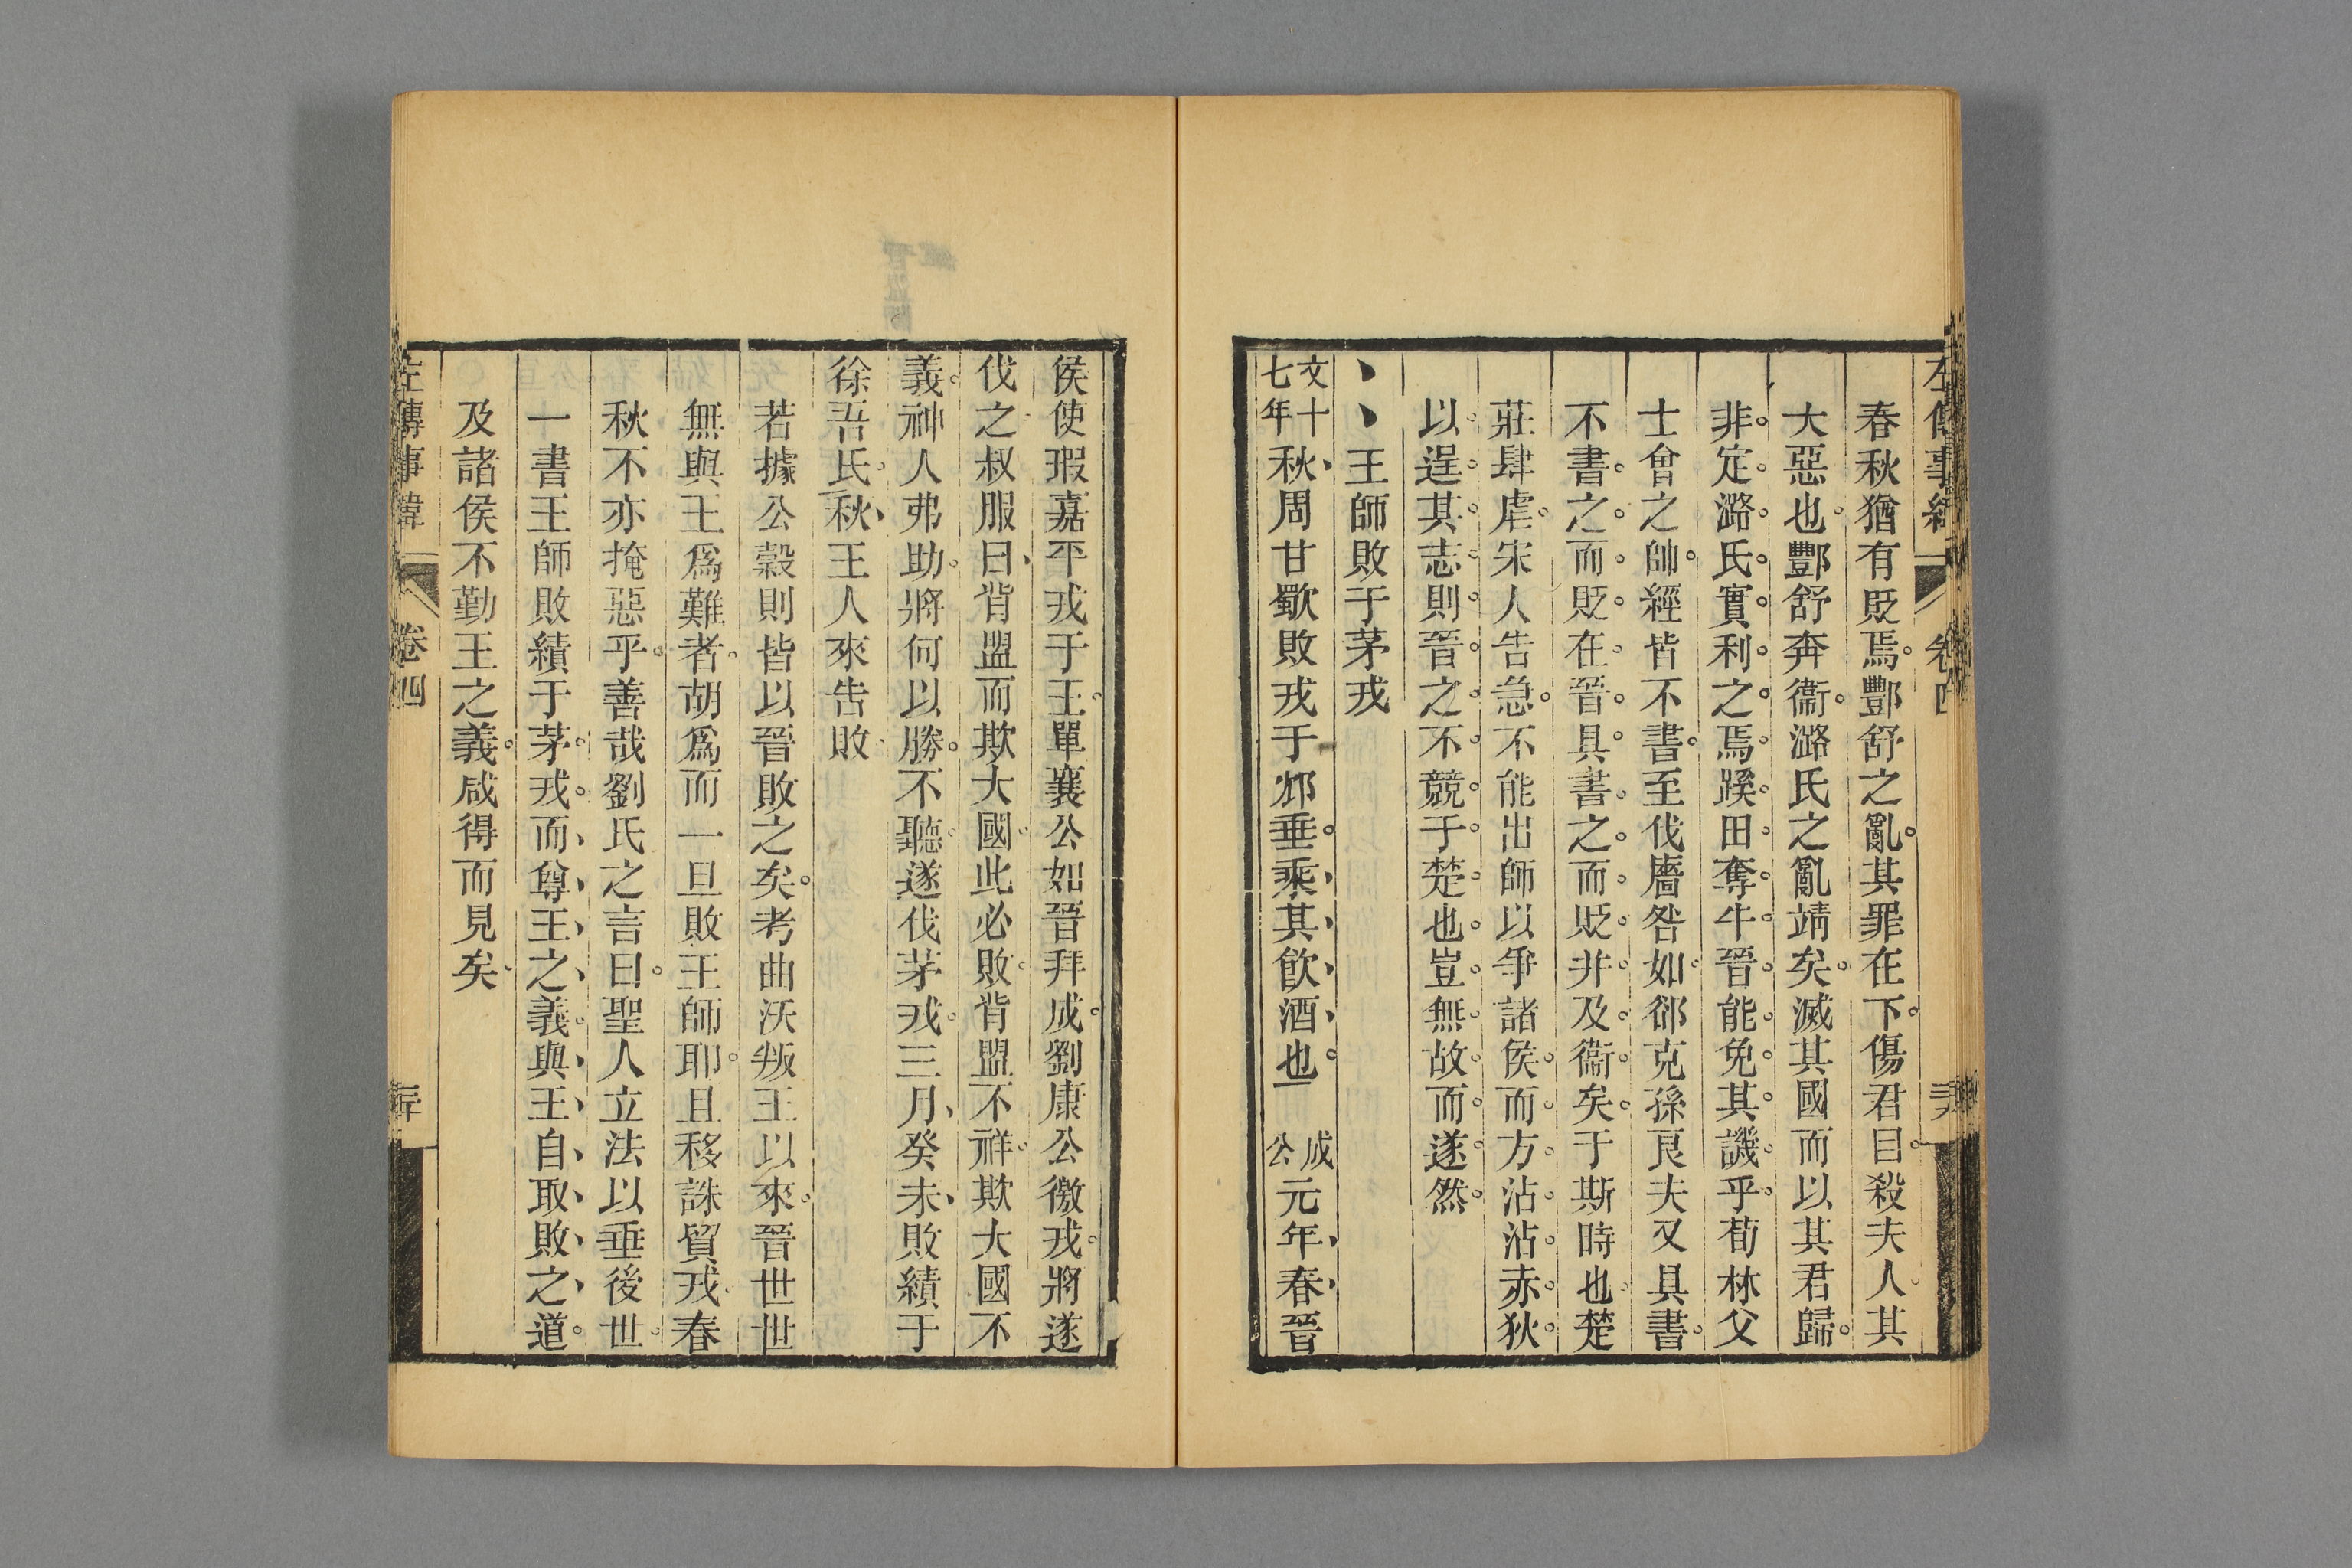 春秋猶有貶焉酆舒之亂其罪在下傷君目殺夫人其
大惡也酆舒奔衞潞氏之亂靖矣滅其國而以其君歸
非定潞氏實利之焉蹊田奪牛晉能免其譏乎荀林父
士會之帥經皆不書至伐廧咎如郤克孫良夫又具書
不書之而貶在晉具書之而貶并及衞矣于斯時也楚
莊肆虐宋人告急不能出師以爭諸侯而方沾沾赤狄
以逞其志則晉之不競于楚也豈無故而遂然
王師敗于茅戎
文十七年秋周甘歜敗戎于邥垂乘其飲酒也 成公元年春晉
侯使瑕嘉平戎于王單襄公如晉拜成劉康公徼戎將遂
伐之叔服曰背盟而欺大國此必敗背盟不祥欺大國不
義神人弗助將何以勝不聽遂伐茅戎三月癸未敗績于
徐吾氏秋王人來告敗
若據公穀則皆以晉敗之矣考曲沃叛王以來晉世世
無與王爲難者胡爲而一旦敗王師耶且移誅貿戎春
秋不亦掩惡乎善哉劉氏之言曰聖人立法以垂後世
一書王師敗績于茅戎而尊王之義與王自取敗之道
及諸侯不勤王之義咸得而見矣
左傳事緯 卷四